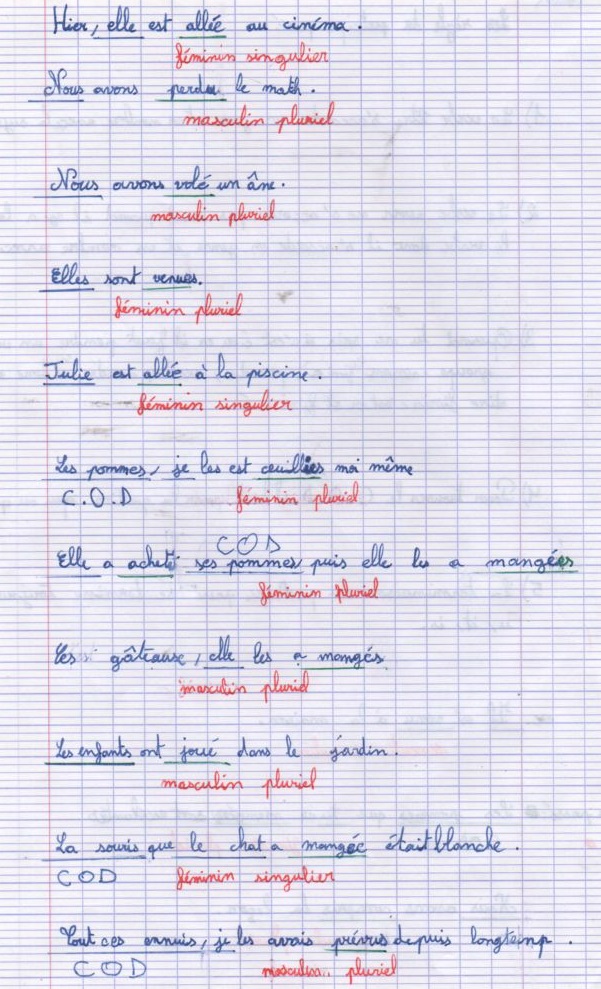 Hier, elle est allée au cinéma.
féminin singulier
Nous avons perdu le math.
masculin pluriel
Nous avons volé un âne.
masculin pluriel
Elles sont venues.
féminin pluriel
Julie est allée à la piscine.
féminin singulier
Les pommes, je les est cueillies moi même
C.O.D féminin pluriel
COD
Elle a acheté ses pommes, puis elle les a mangées
féminin pluriel
Les gâteaux, elle les a mangés
masculin pluriel
Les enfants ont joué dans le jardin.
masculin pluriel
La souris que le chat a mangée était blanche.
COD féminin singulier
Tout ces ennuis, je les avais prévus depuis longtemp.
COD masculin pluriel